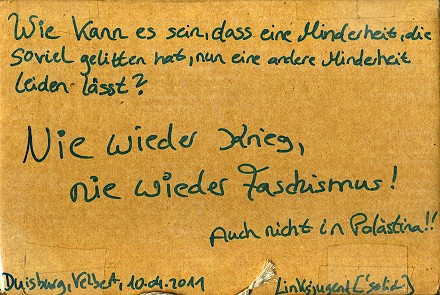 Wie kann es sein, dass eine Minderheit, die
soviel gelitten hat, nun eine andere Minderheit
leiden lässt?
Nie wieder Krieg,
nie wieder Faschismus!
Auch nicht in Palästina!!
Duisburg, Velbert, 10.04.2011
Linksjugent['solid]